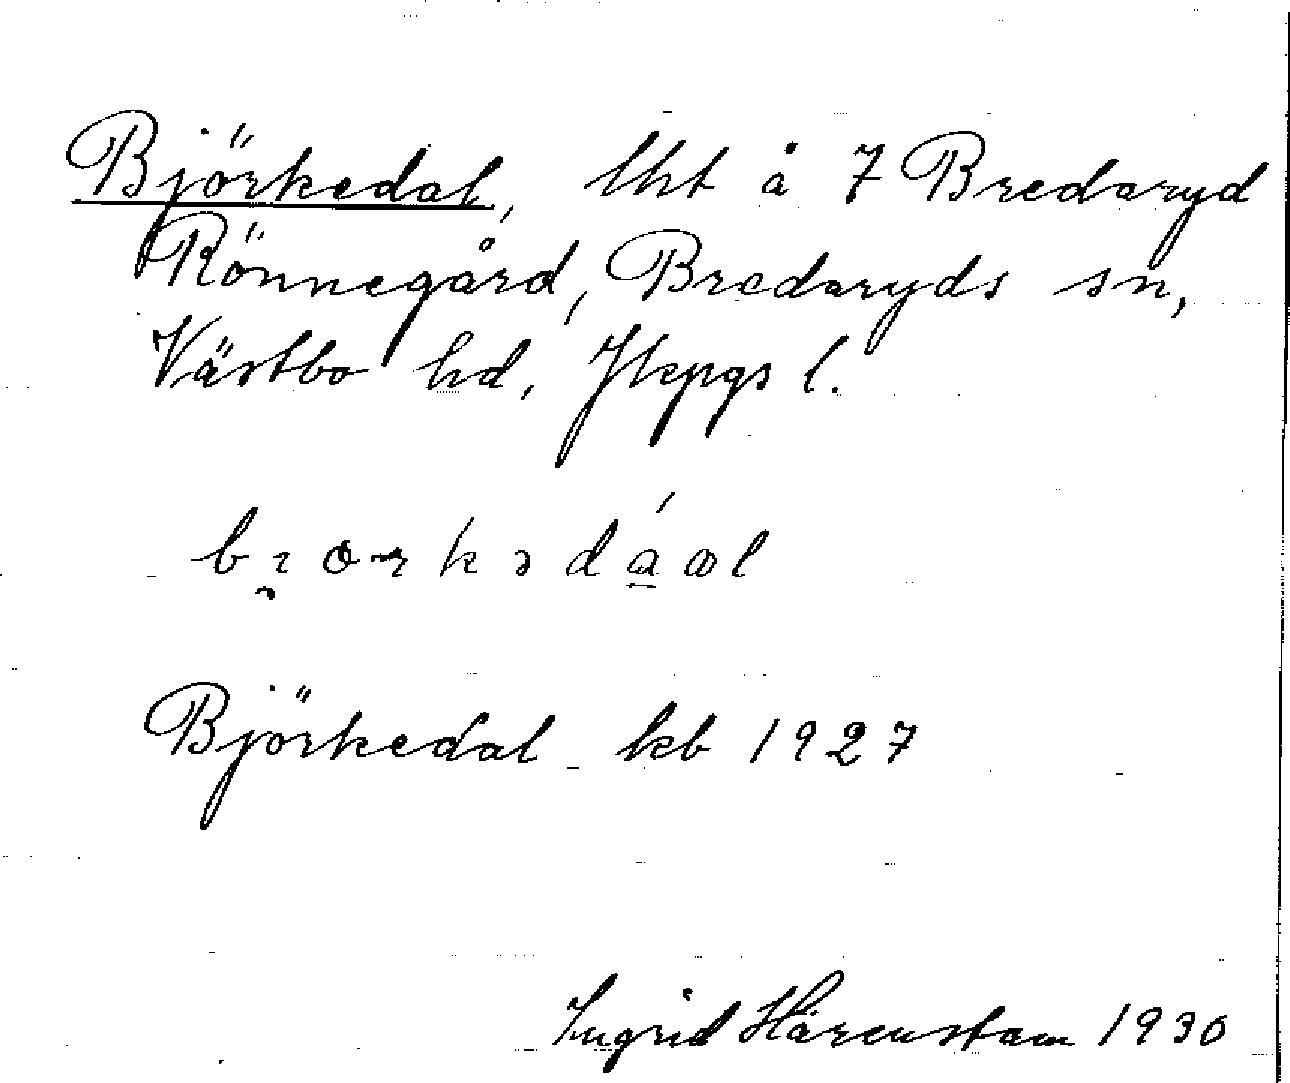 Björkedal, lht å 7 Bredaryd
Rönnegård, Bredaryds sn,
Västbo hd, Jkpgs l.
Björkedal kb 1927
Ingrid Härenstam 1930